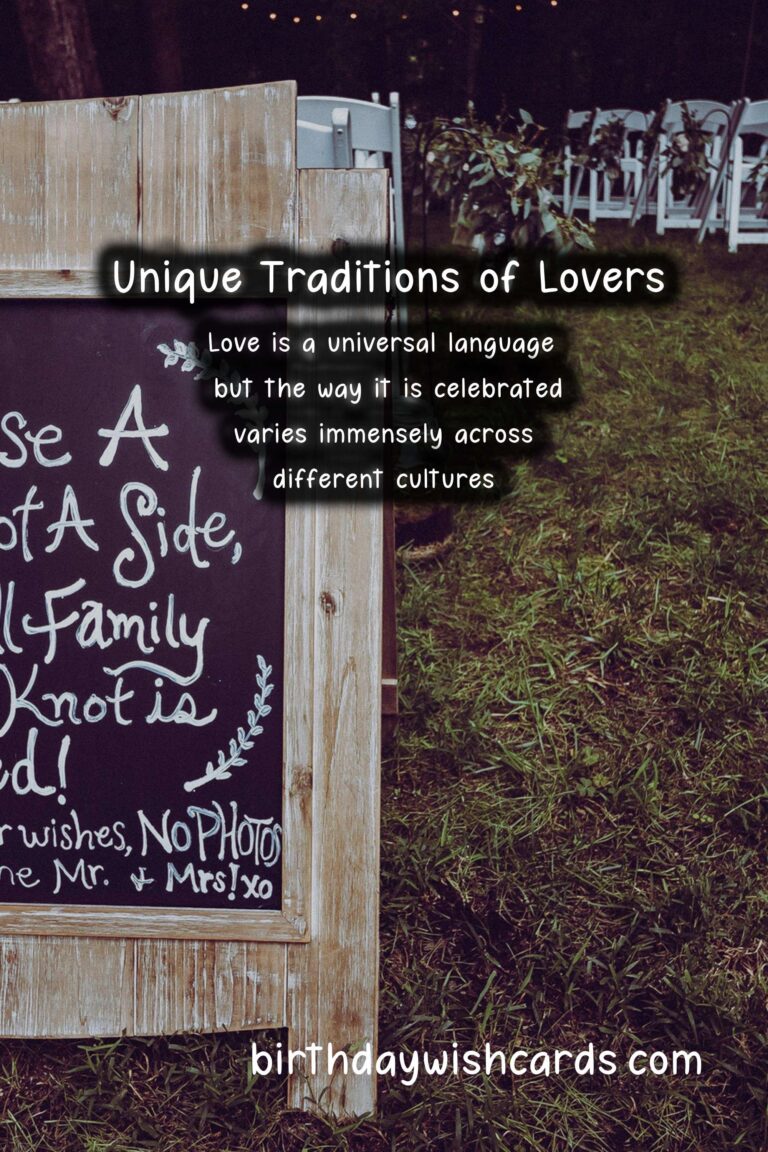 Unique Traditions of Lovers
Love is a universal language
but the way it is celebrated
varies immensely across
different cultures
se A
ot A Side,
ll Family
Knot is
ed!
r wishes, NO PHOTOS
ne Mr. & Mrs! xo
birthdaywishcards.com